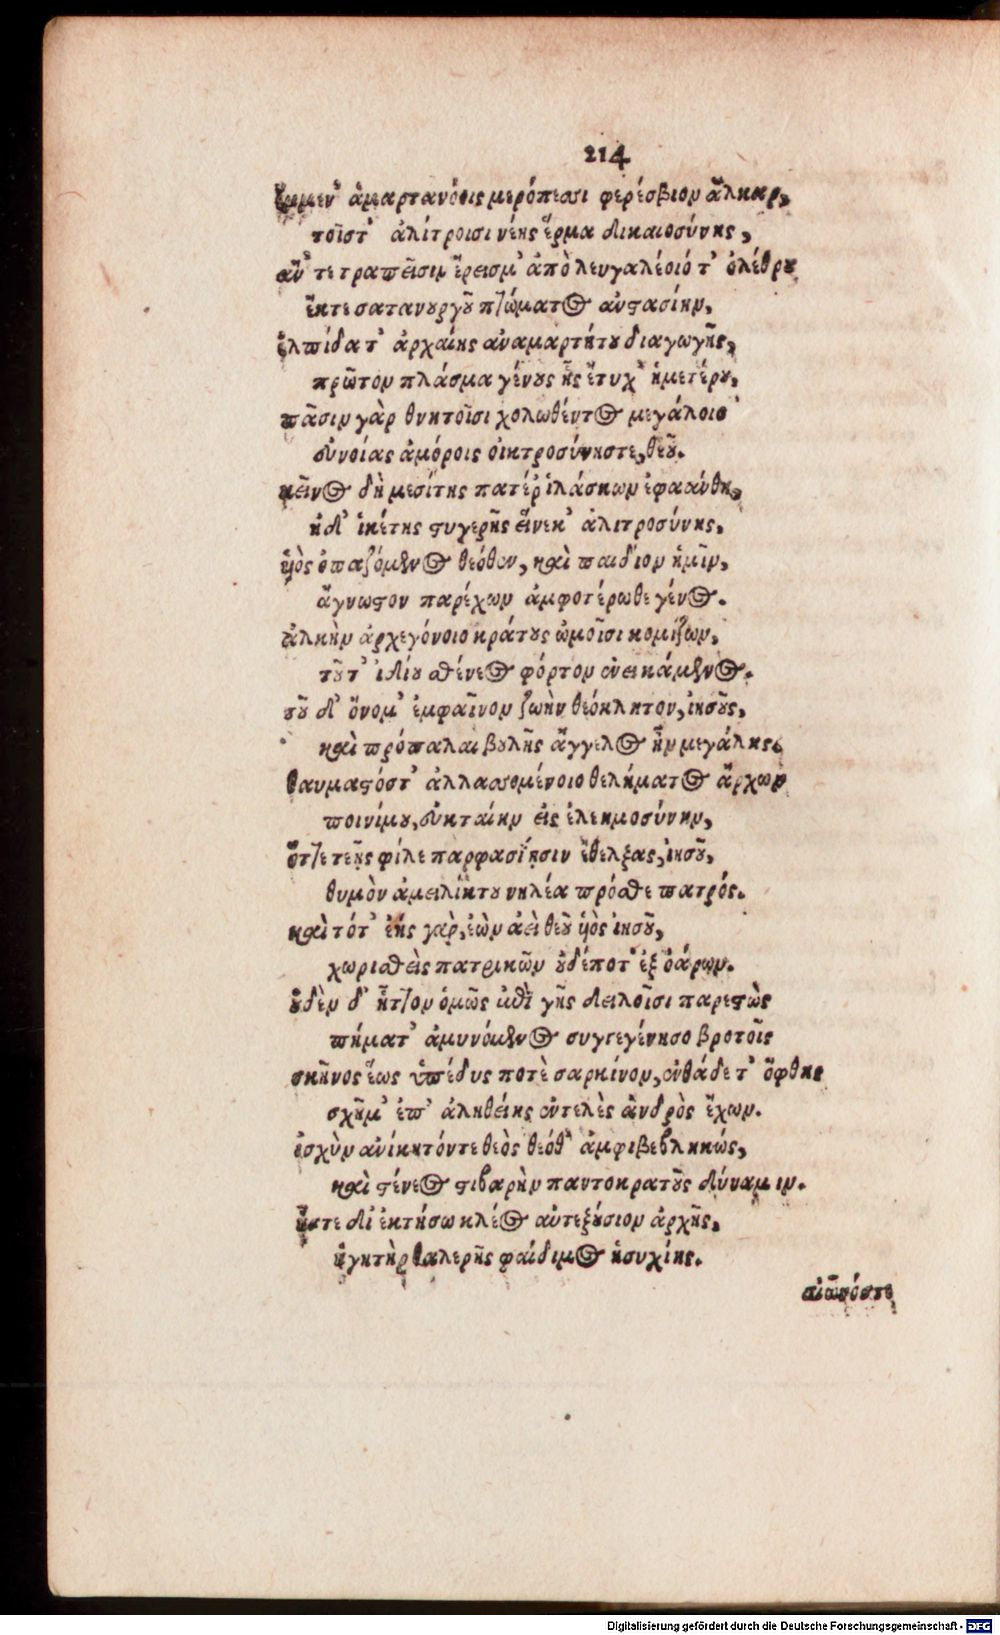 214
ἔμμεν' ἁμαρτανόοις μερόπεσσι φερέσβιον ἄλκαρ,
τοῖστ' ἀλίτροισι νέης ἕρμα δικαιοσύνης,
ἄν τε τραπεῖσιν ἔρεισμ' ἀπὸ λευγαλέοιό τ' ὀλέθρου
ἔκτε σατανουργοῦ πτώματος ἀνστασίην,
ἐλπίδα τ' ἀρχαίης ἀναμαρτήτου διαγωγῆς,
πρῶτον πλάσμα γένους ἧς ἔτυχ' ἡμετέρου,
πᾶσιν γὰρ θνητοῖσι χολωθέντος μεγάλοιο
συνοίας ἀμόροις οἰκτροσύνηστε, θεοῦ.
κεῖνος δὴ μεσίτης πατέρ' ἱλάσκων ἐφαάνθη,
ἠδ' ἱκέτης στυγερῆς εἵνεκ' ἀλιτροσύνης,
υἱὸς ὀπαζόμενος θεόθεν, καὶ παιδίον ἡμῖν,
ἄγνωστον παρέχων ἀμφοτέρωθε γένος.
ἀλκὴν ἀρχεγόνοιο κράτους ὤμοῖσι κομίζων,
τοῦτ' ἰδίου σθένεος φόρτον ἐνεικάμενος.
τοῦ δ' ὄνομ' ἐμφαῖνον ζωὴν θεόκλητον, ἰησοῦς,
καὶ πρόπαλαι βουλῆς ἄγγελος ἦν μεγάλης.
θαυμαστόστ' ἀλλασσομένοιο θελήματος ἄρχων
ποινίμου, εὐκταίην εἰς ἐλεημοσύνην,
ὅττε τεῇς φίλε παρφασίῃσιν ἔθελξας, ἰησοῦ,
θυμὸν ἀμειλίκτου νηλέα πρόσθε πατρός.
καὶ τότ' ἔης γὰρ, ἐὼν ἀεὶ θεοῦ υἱὸς ἰησοῦ,
χωρισθεὶς πατρικῶν οὐδέποτ' ἐξ ὀάρων.
οὐδὲν δ' ἧττον ὁμῶς ἐπὶ γῆς δειλοῖσι παρεστὼς
πήματ' ἀμυνόμενος συγγεγένησο βροτοῖς
σκῆνος ἕως ὑπέδυς ποτὲ σαρκίνον, ἐνθάδε τ' ὤφθης
σχῆμ' ἐπ' ἀληθείης ἐντελὲς ἀνδρὸς ἔχων.
ἰσχὺν ἀνίκητόντε θεὸς θεόθ' ἀμφιβεβληκώς,
καὶ στένεος στιβαρὴν παντοκρατοῦς δύναμιν.
ᾗστε δἰ ἐκτήσω κλέος αὐτεξούσιον ἀρχῆς,
ἡγητὴρ θαλερῆς φαίδιμος ἡσυχίης.
αἰῶνόστε
Digitalisierung gefördert durch die Deutsche Forschungsgemeinschaft - DFG